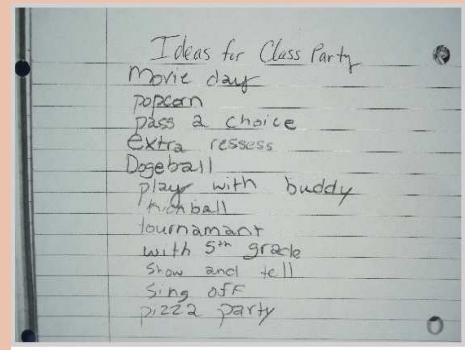 Ideas for Class Party
Movie day
popcorn
pass a choice
extra ressess
Dogeball
play with buddy
kickball
tournamant
with 5th grade
show and tell
Sing off
pizza party